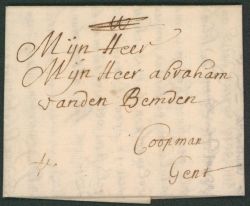 Mÿn Heer
Mÿn Heer abraham
vanden Bemden
Coopman
Gent